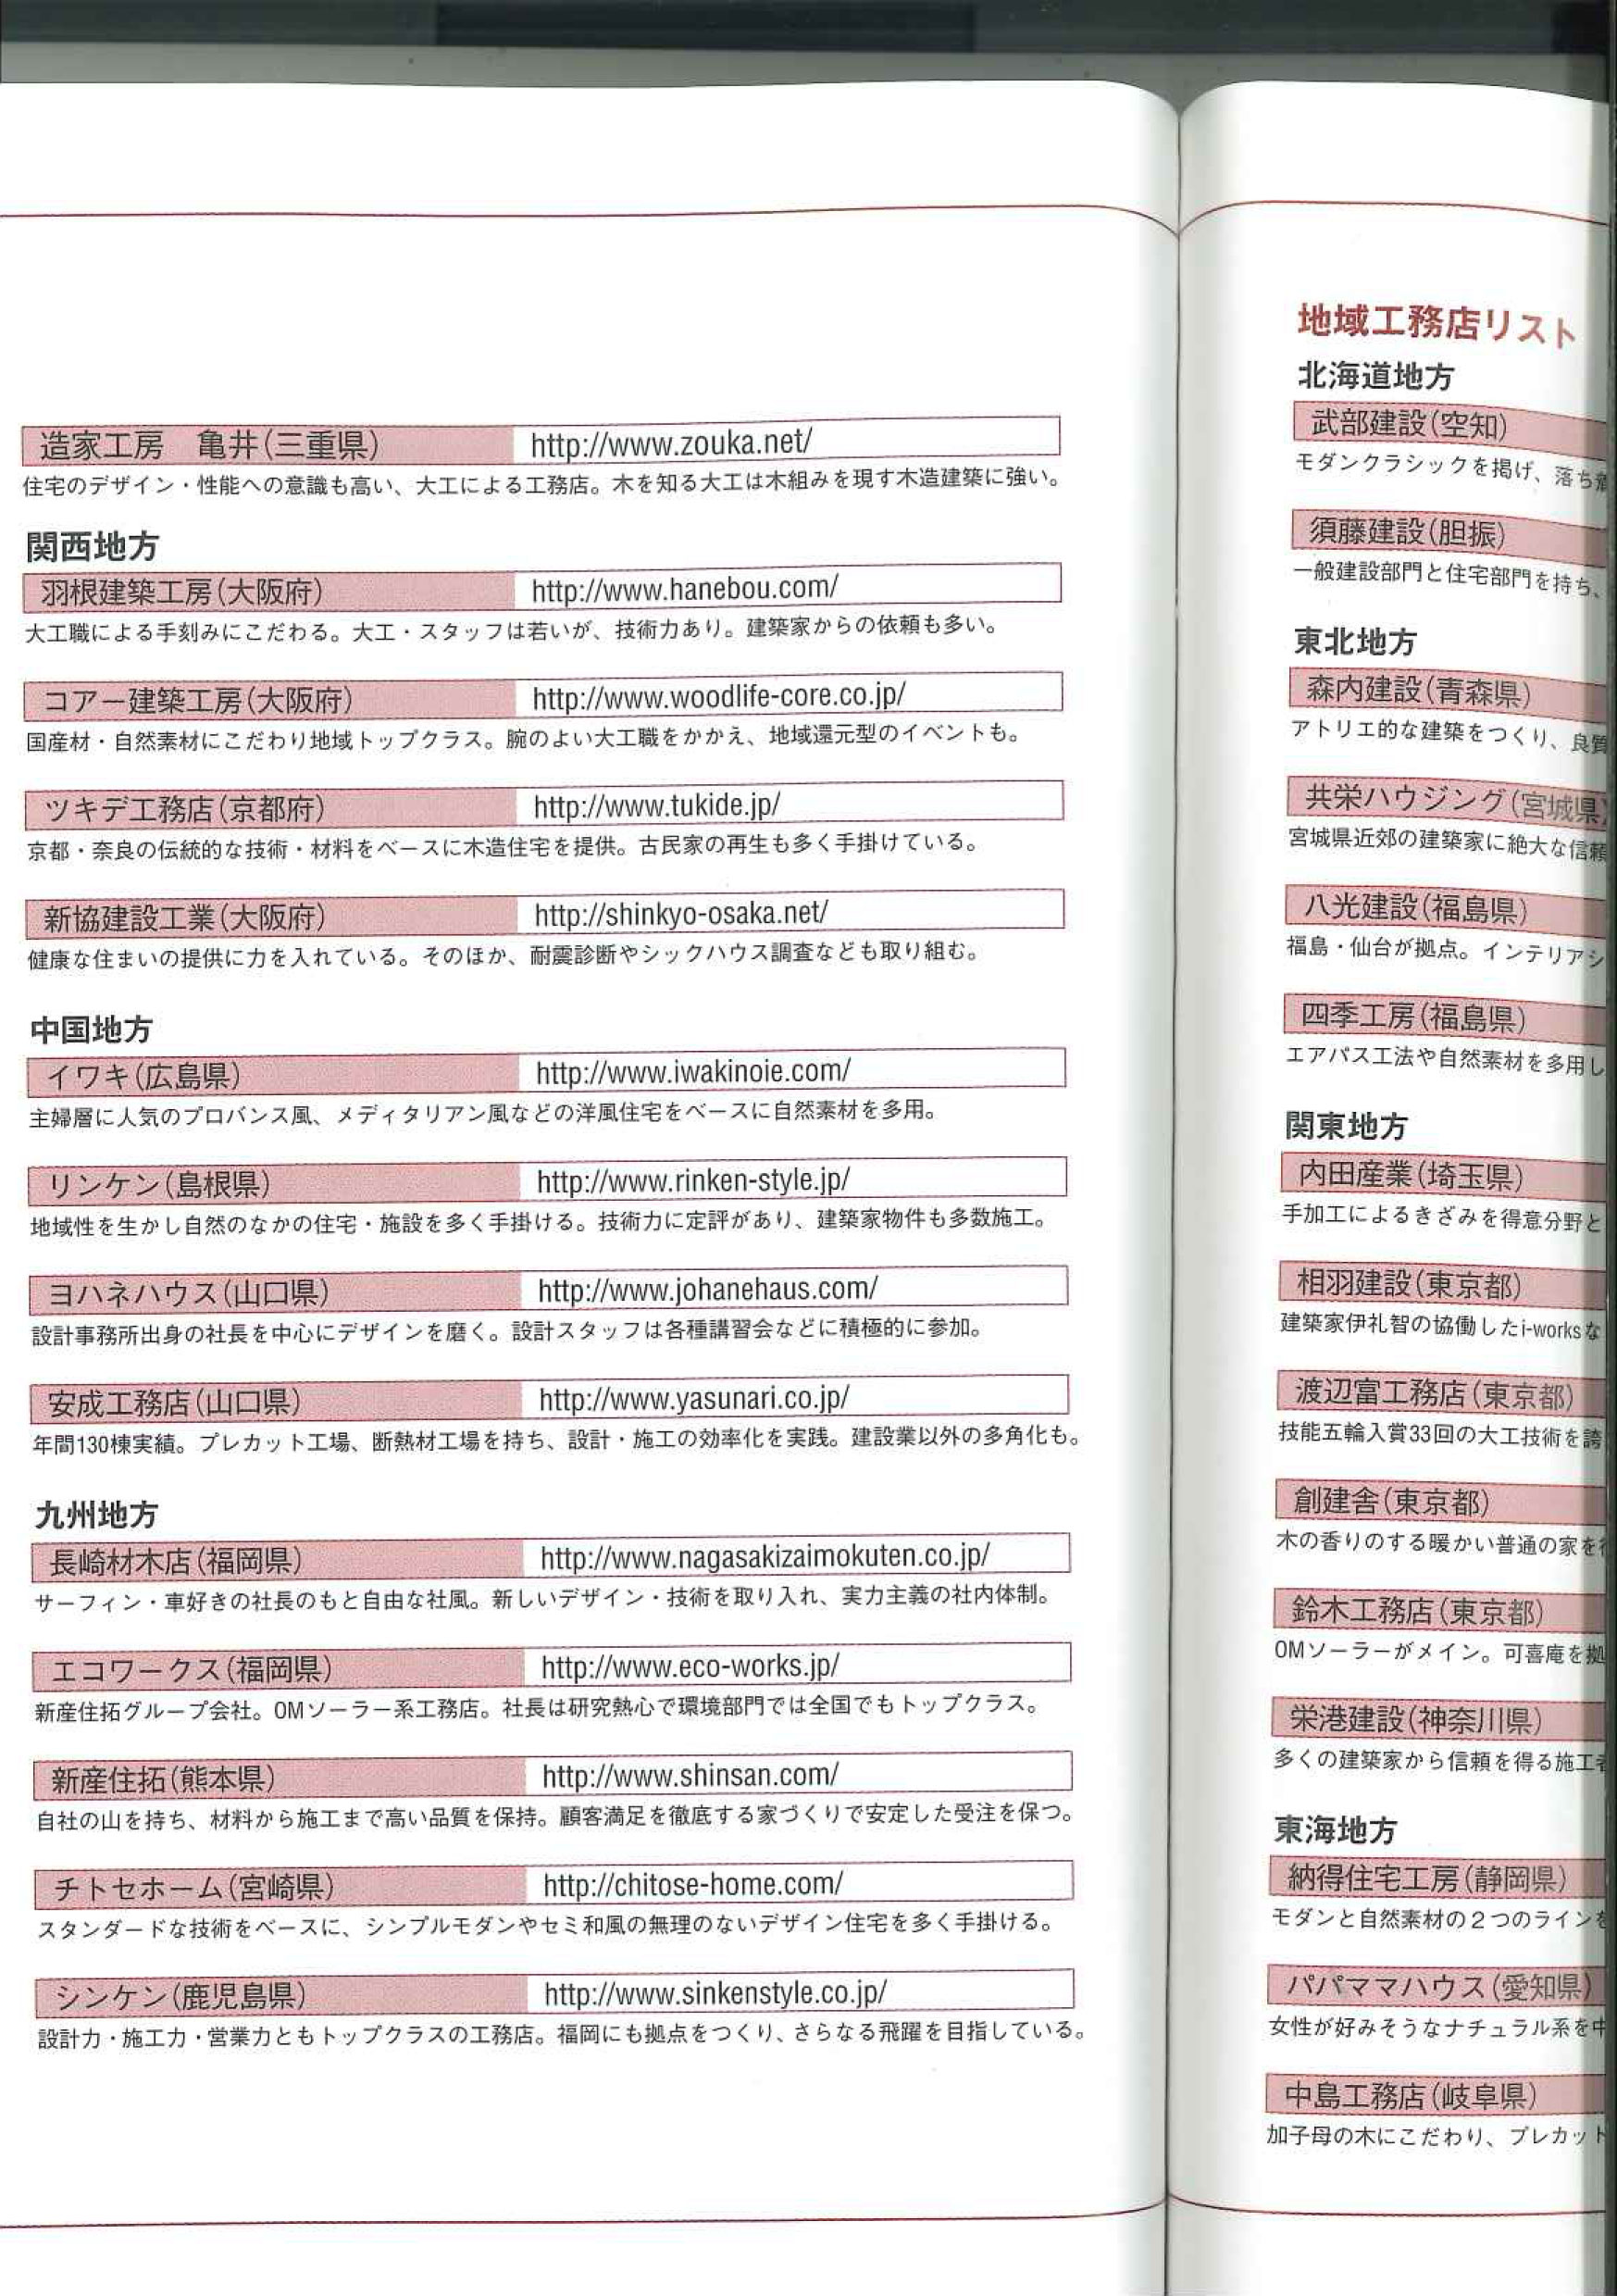 造家工房　亀井(三重県) http://www.zouka.net/
住宅のデザイン・性能への意識も高い、大工による工務店。木を知る大工は木組みを現す木造建築に強い。
関西地方
羽根建築工房(大阪府) http://www.hanebou.com/
大工職による手刻みにこだわる。大工・スタッフは若いが、技術力あり。建築家からの依頼も多い。
コアー建築工房(大阪府) http://www.woodlife-core.co.jp/
国産材・自然素材にこだわり地域トップクラス。腕のよい大工職をかかえ、地域還元型のイベントも。
ツキデ工務店(京都府) http://www.tukide.jp/
京都・奈良の伝統的な技術・材料をベースに木造住宅を提供。古民家の再生も多く手掛けている。
新協建設工業(大阪府) http://shinkyo-osaka.net/
健康な住まいの提供に力を入れている。そのほか、耐震診断やシックハウス調査なども取り組む。
中国地方
イワキ(広島県) http://www.iwakinoie.com/
主婦層に人気のプロバンス風、メディタリアン風などの洋風住宅をベースに自然素材を多用。
リンケン(島根県) http://www.rinken-style.jp/
地域性を生かし自然のなかの住宅・施設を多く手掛ける。技術力に定評があり、建築家物件も多数施工。
ヨハネハウス(山口県) http://www.johanehaus.com/
設計事務所出身の社長を中心にデザインを磨く。設計スタッフは各種講習会などに積極的に参加。
安成工務店(山口県) http://www.yasunari.co.jp/
年間130棟実績。プレカット工場、断熱材工場を持ち、設計・施工の効率化を実践。建設業以外の多角化も。
九州地方
長崎材木店(福岡県) http://www.nagasakizaimokuten.co.jp/
サーフィン・車好きの社長のもと自由な社風。新しいデザイン・技術を取り入れ、実力主義の社内体制。
エコワークス(福岡県) http://www.eco-works.jp/
新産住拓グループ会社。OMソーラー系工務店。社長は研究熱心で環境部門では全国でもトップクラス。
新産住拓(熊本県) http://www.shinsan.com/
自社の山を持ち、材料から施工まで高い品質を保持。顧客満足を徹底する家づくりで安定した受注を保つ。
チトセホーム(宮崎県) http://chitose-home.com/
スタンダードな技術をベースに、シンプルモダンやセミ和風の無理のないデザイン住宅を多く手掛ける。
シンケン(鹿児島県) http://www.sinkenstyle.co.jp/
設計力・施工力・営業力ともトップクラスの工務店。福岡にも拠点をつくり、さらなる飛躍を目指している。
地域工務店リスト
北海道地方
武部建設(空知)
モダンクラシックを掲げ、落ち着
須藤建設(胆振)
一般建設部門と住宅部門を持ち、
東北地方
森内建設(青森県)
アトリエ的な建築をつくり、良質
共栄ハウジング(宮城県)
宮城県近郊の建築家に絶大な信頼
八光建設(福島県)
福島・仙台が拠点。インテリアシ
四季工房(福島県)
エアパス工法や自然素材を多用し
関東地方
内田産業(埼玉県)
手加工によるきざみを得意分野と
相羽建設(東京都)
建築家伊礼智の協働したi-worksな
渡辺富工務店(東京都)
技能五輪入賞33回の大工技術を誇
創建舎(東京都)
木の香りのする暖かい普通の家を
鈴木工務店(東京都)
OMソーラーがメイン。可喜庵を拠
栄港建設(神奈川県)
多くの建築家から信頼を得る施工者
東海地方
納得住宅工房(静岡県)
モダンと自然素材の２つのラインを
パパママハウス(愛知県)
女性が好みそうなナチュラル系を中
中島工務店(岐阜県)
加子母の木にこだわり、プレカット